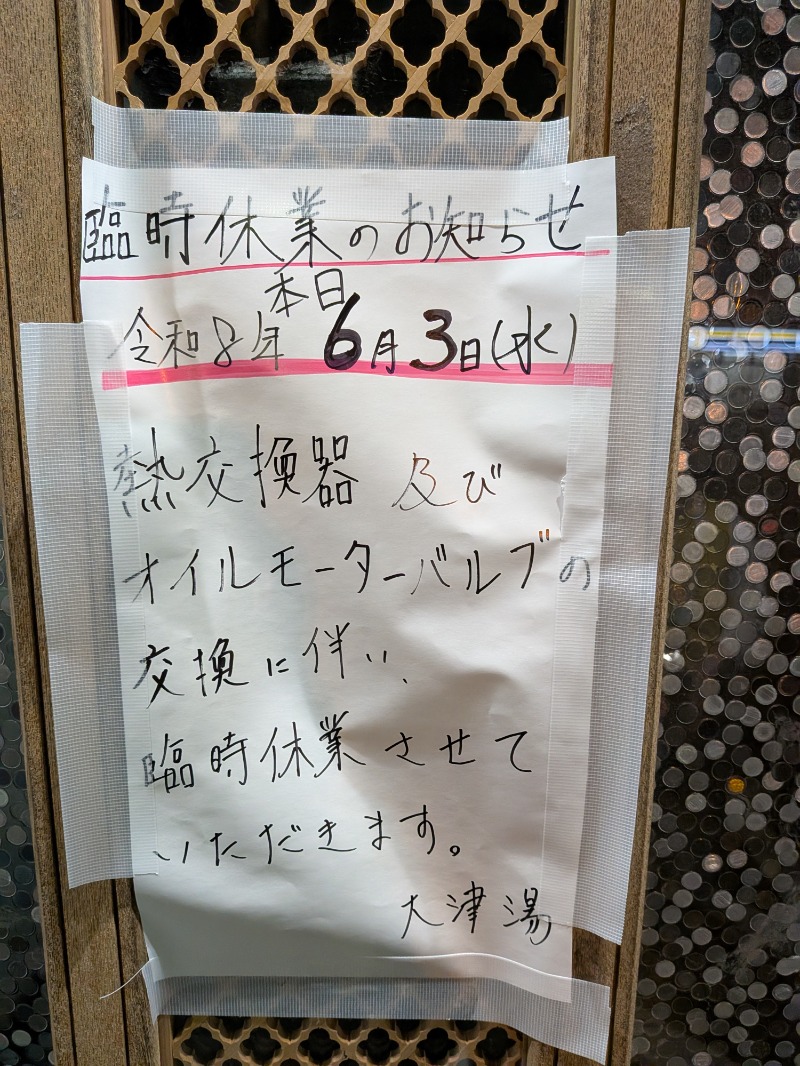 臨時休業のお知らせ
本日
令和8年 6月3日(水)
熱交換器 及び
オイルモーターバルブの
交換に伴い、
臨時休業させて
いただきます。
大津湯